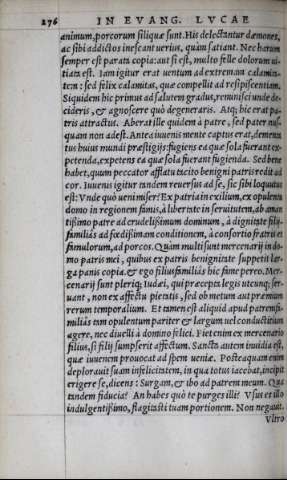 276 IN EVANG. LVCAE
animum, porcorum siliquæ sunt. His delectantur dæmones,
ac sibi addictos inescant uerius, quàm satiant. Nec harum
semper est parata copia: aut si est, multo felle dolorum ui-
tiata est. Iam igitur erat uentum ad extremam calamita-
tem: sed felix calamitas, quæ compellit ad resipiscentiam.
Siquidem hic primus ad salutem gradus, reminisci unde de-
cideris, & agnoscere quò degeneraris. Atq; hic erat pa-
tris attractus. Aberat ille quidem à patre, sed pater nus-
quam non adest. Antea iuuenis mente captus erat, dementa
tus huius mundi præstigijs: fugiens ea quæ sola fuerant ex-
petenda, expetens ea quæ sola fuerant fugienda. Sed bene
habet, quum peccator afflatu tacito benigni patris redit ad
cor. Iuuenis igitur tandem reuersus ad se, sic sibi loquutus
est: Vnde quò ueni miser? Ex patria in exilium, ex opulenta
domo in regionem famis, à libertate in seruitutem, ab aman
tissimo patre ad crudelissimum dominum, à dignitate filij-
familiâs ad fœdissimam conditionem, à consortio fratris et
famulorum, ad porcos. Quàm multi sunt mercenarij in do-
mo patris mei, quibus ex patris benignitate suppetit lar-
ga panis copia, & ego filiusfamiliâs hic fame pereo. Mer-
cenarij sunt pleriq; Iudæi, qui præcepta legis utcunq; ser-
uant, non ex affectu pietatis, sed ob metum aut præmium
rerum temporalium. Et tamen est aliquid apud patremfa-
miliâs tam opulentum pariter & largum uel conditiuum
agere, nec diuelli à domino felici. Fiet enim ex mercenario
filius, si filij sumpserit affectum. Sancta autem inuidia est,
quæ iuuenem prouocat ad spem ueniæ. Posteaquam enim
deplorauit suam infelicitatem, in qua totus iacebat, incipit
erigere se, dicens: Surgam, & ibo ad patrem meum. Quæ
tandem fiducia? An habes quò te purges illi? Vsus es illo
indulgentissimo, flagitasti tuam portionem. Non negauit.
Vltro